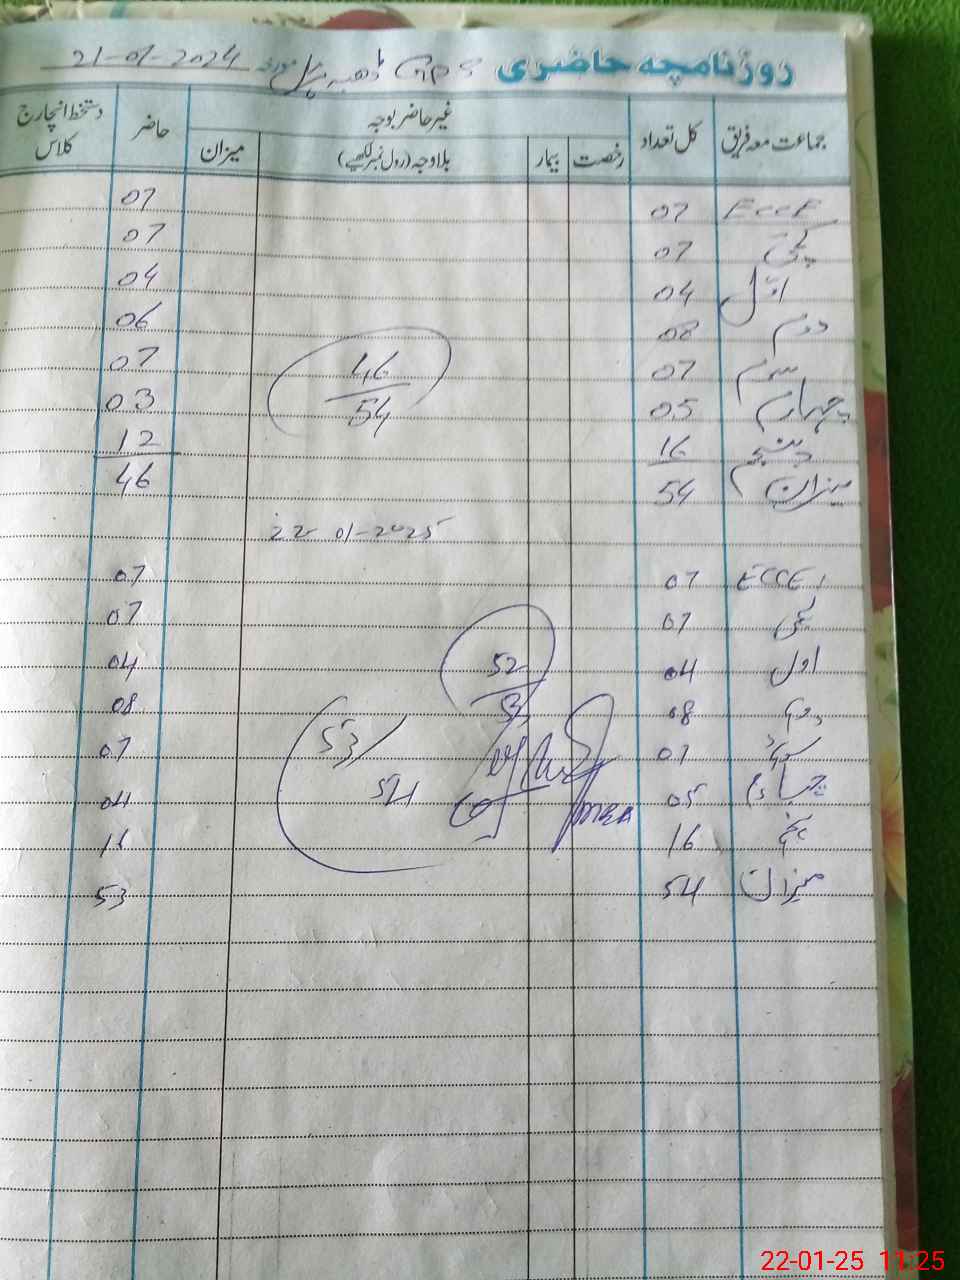 روزنامچہ حاضری GPS مورخہ 21-01-2024
جماعت معہ فریق کل تعداد غیر حاضر بوجہ حاضر دستخط انچارج کلاس
رخصت بیمار بلاوجہ (رول نمبر لکھیے) میزان
ECCE 07 07
کچی 07 07
اوّل 04 04
دوم 08 06
سوم 07 07
چہارم 05 03
پنجم 16 12
میزان 54 46
46
54
22-01-2025
ECCE 07 07
کچی 07 07
اول 04 04
دوم 08 08
سوم 07 07
چہارم 05 04
پنجم 16 16
میزان 54 53
52
53/
54
22-01-25 11:25